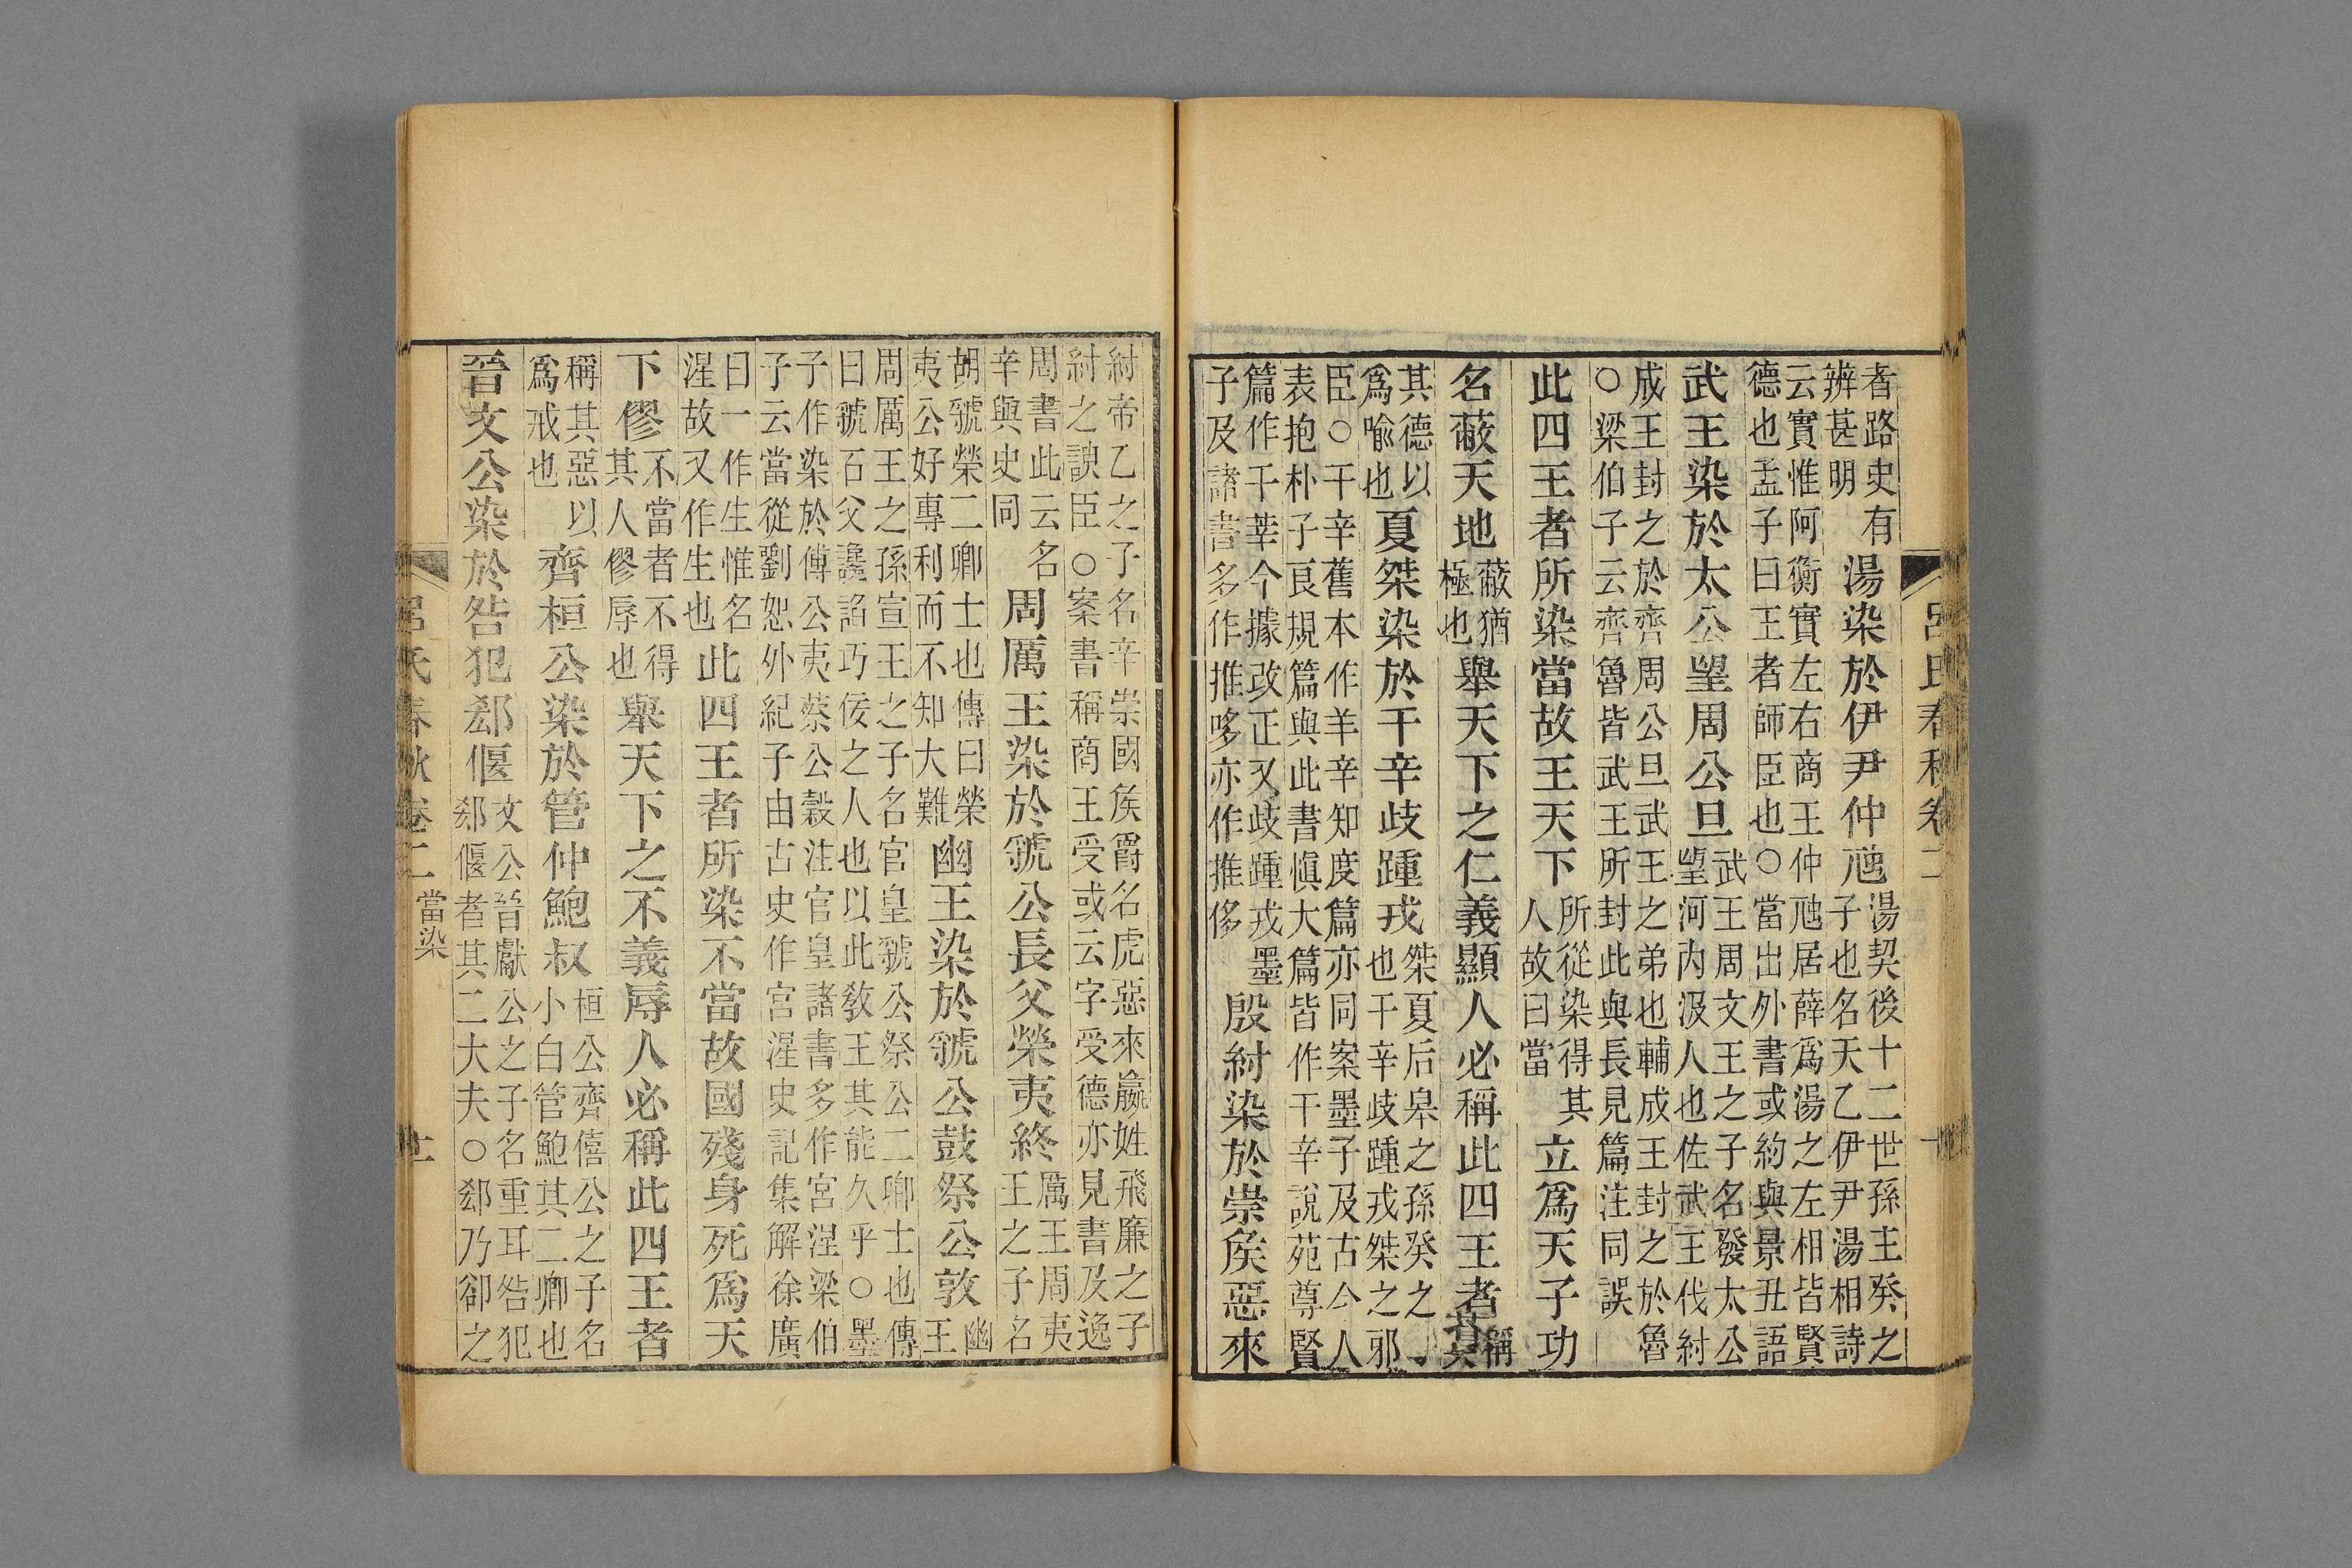 呂氏春秋卷二
者路史有辨甚明湯染於伊尹仲虺湯契後十二世孫主癸之子也名天乙伊尹湯相詩
云實惟阿衡實左右商王仲虺居薛爲湯之左相皆賢
德也孟子曰王者師臣也○當出外書或約與景丑語
武王染於太公望周公旦武王周文王之子名發太公望河内汲人也佐武王伐紂
成王封之於齊周公旦武王之弟也輔成王封之於魯
○梁伯子云齊魯皆武王所封此與長見篇注同誤
此四王者所染當故王天下所從染得其人故曰當立爲天子功
名蔽天地蔽猶極也舉天下之仁義顯人必稱此四王者稱美
其德以爲喻也夏桀染於干辛歧踵戎桀夏后皋之孫癸之也干辛歧踵戎桀之邪
臣○干辛舊本作羊辛知度篇亦同案墨子及古今人
表抱朴子良規篇與此書愼大篇皆作干辛說苑尊賢
篇作干莘今據改正又歧踵戎墨子及諸書多作推哆亦作推侈殷紂染於崇侯惡來
紂帝乙之子名辛崇國侯爵名虎惡來嬴姓飛廉之子
紂之諛臣○案書稱商王受或云字受德亦見書及逸
周書此云名辛與史同周厲王染於虢公長父榮夷終厲王周夷王之子名
胡虢榮二卿士也傳曰榮夷公好專利而不知大難幽王染於虢公鼓祭公敦幽王
周厲王之孫宣王之子名官皇虢公祭公二卿士也傳
曰虢石父讒諂巧佞之人也以此敎王其能久乎○墨
子作染於傅公夷蔡公穀注官皇諸書多作宮涅梁伯
子云當從劉恕外紀子由古史作宮湼史記集解徐廣
曰一作生惟名湼故又作生也此四王者所染不當故國殘身死爲天
下僇不當者不得其人僇辱也舉天下之不義辱人必稱此四王者
稱其惡以爲戒也齊桓公染於管仲鮑叔桓公齊僖公之子名小白管鮑其二卿也
晉文公染於咎犯郄偃文公晉獻公之子名重耳咎犯郄偃者其二大夫○郄乃郤之
呂氏春秋卷二 當染 十一